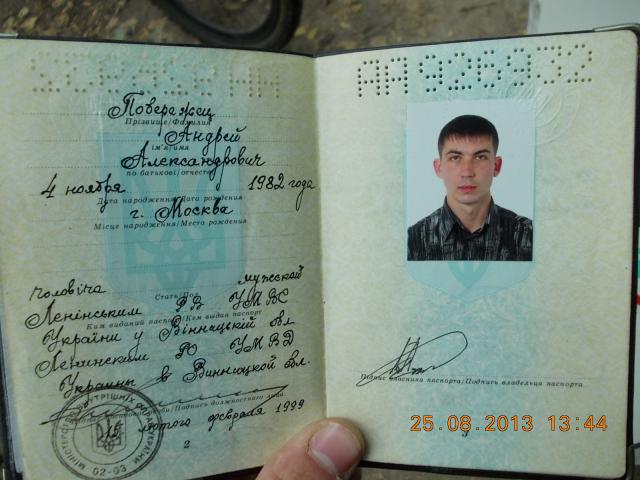 АА 926932
Повережец
Прізвище/Фамилия
Андрей
ім'я/имя
Александрович
по батькові/отчество
4 ноября 1982 года
Дата народження/Дата рождения
г. Москва
Місце народження/Место рождения
чоловіча мужской
Стать/Пол
Ленінським РВ УМВС
Ким виданий паспорт/Кем выдан паспорт
України у Вінницькій обл
Ленинским РО УМВД
Украины в Винницкой обл.
Підпис посадової особи/Подпись должностного лица
лютого февраля 1999
2
МІНІСТЕРСТВО ВНУТРІШНІХ СПРАВ УКРАЇНИ
02-03
Підпис власника паспорта/Подпись владельца паспорта
3
25.08.2013 13:44